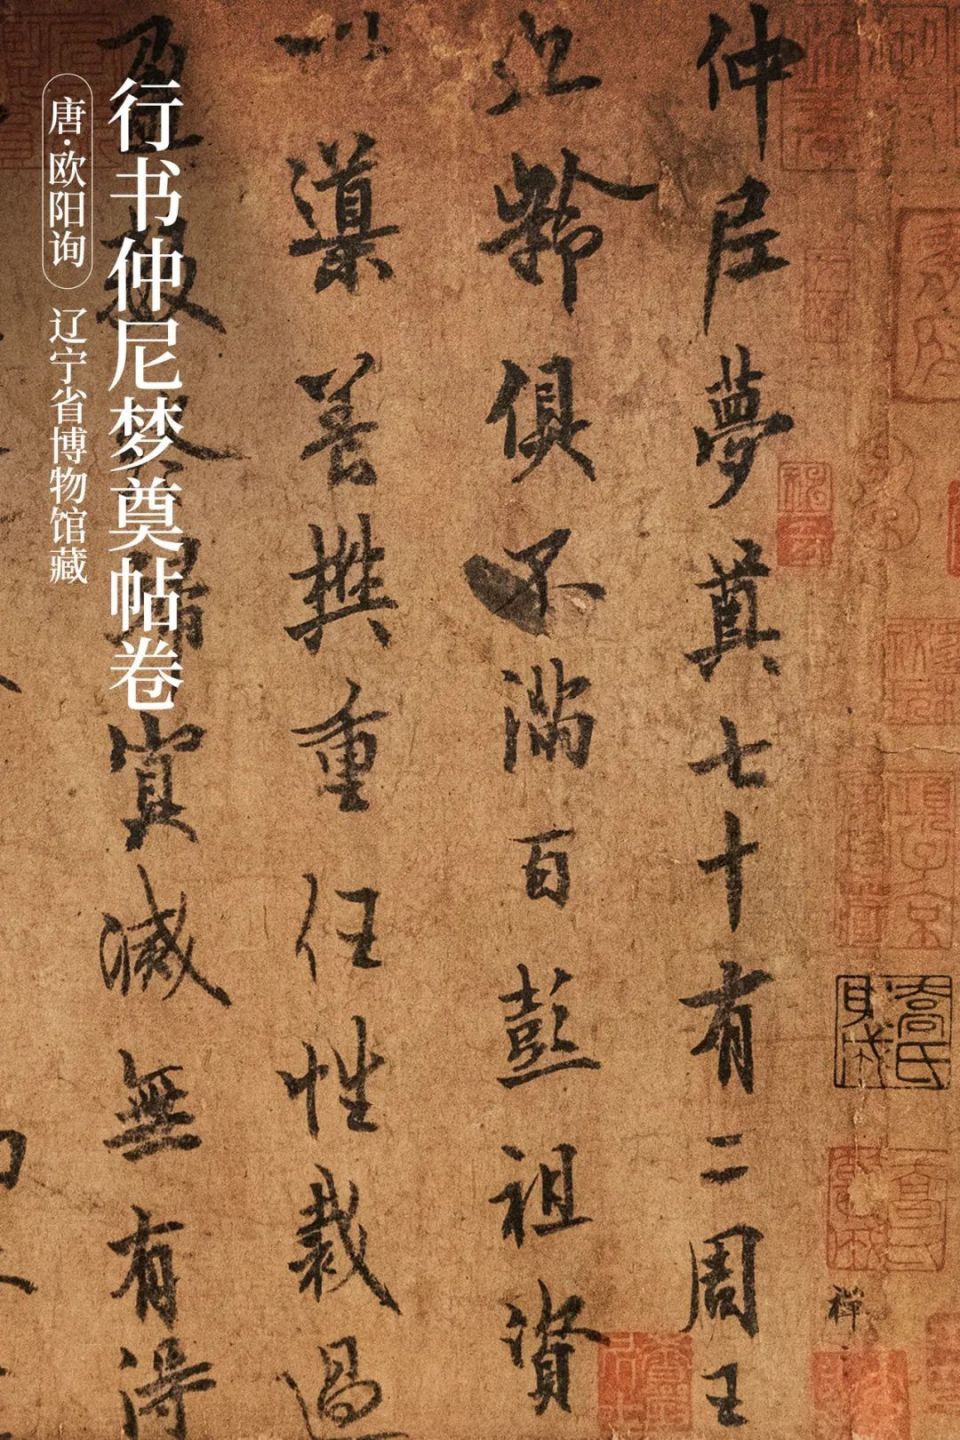 行书仲尼梦奠帖卷
唐·欧阳询
辽宁省博物馆藏
仲尼夢奠七十有二周王
九齡俱不滿百彭祖資
以導養樊重任性裁過
盈數終歸冥滅無有得
項子京
禪